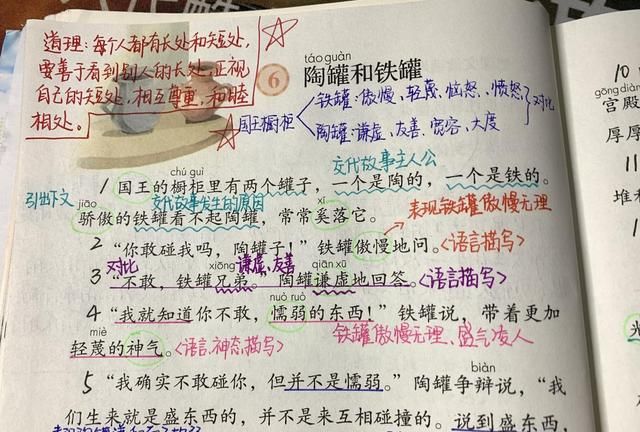 道理:每个人都有长处和短处,
要善于看到别人的长处,正视
自己的短处,相互尊重,和睦
相处。
táo guàn
6 陶罐和铁罐
国王橱柜
铁罐:傲慢、轻蔑、恼怒、愤怒
陶罐:谦虚、友善、宽容、大度
对比
交代故事主人公
chú guì
1 国王的橱柜里有两个罐子,一个是陶的,一个是铁的。
引出下文
交代故事发生的原因
jiāo xī
骄傲的铁罐看不起陶罐,常常奚落它。
表现铁罐傲慢无理
2 “你敢碰我吗,陶罐子!”铁罐傲慢地问。<语言描写>
对比
xiōng
谦虚、友善
qiān xū
3 “不敢,铁罐兄弟。”陶罐谦虚地回答。<语言描写>
nuò ruò
4 “我就知道你不敢,懦弱的东西!”铁罐说,带着更加
miè
轻蔑的神气。<语言、神态描写>
铁罐傲慢无理、盛气凌人
biàn
5 “我确实不敢碰你,但并不是懦弱。”陶罐争辩说,“我
们生来就是盛东西的,并不是来互相碰撞的。说到盛东西,
10
gōng diàn
宫殿
厚厚
11
堆
1
光